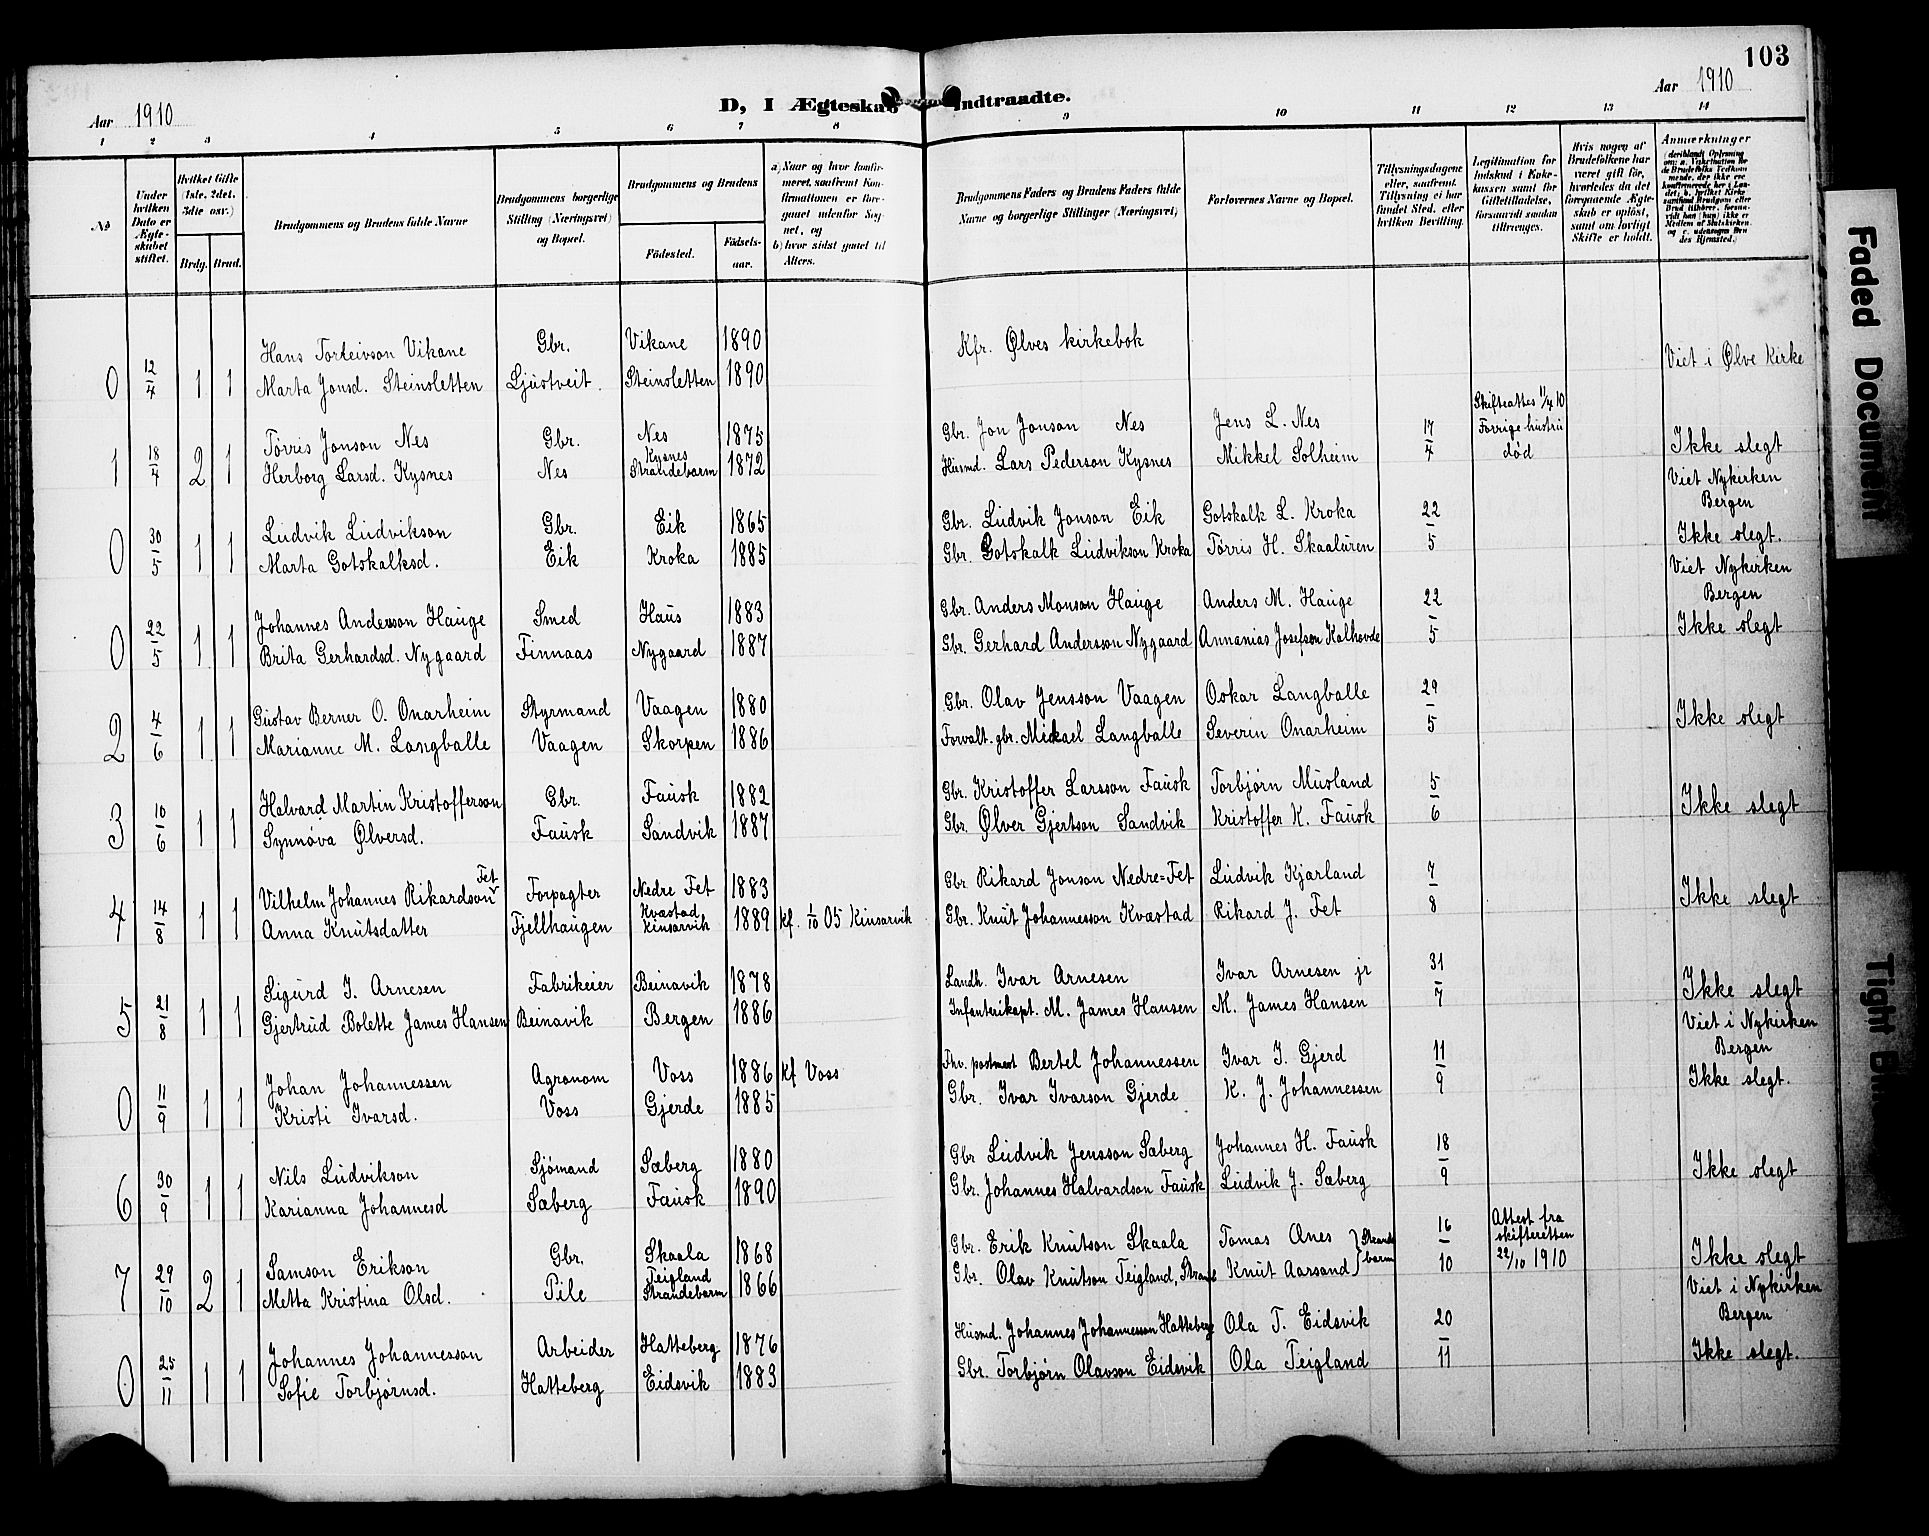 103
Aar 1910
D, I Ægteskab Indtraadte.
Aar 1910
1 2 3 4 5 6 7 8 9 10 11 12 13 14
No
Under hvilken Dato er Ægteskabet stiftet.
Hvilket Gifte (1ste, 2det, 3die osv.)
Brdg. Brud.
Brudgommens og Brudens fulde Navne
Brudgommens borgerlige Stilling (Næringsvei) og Bopæl.
Brudgommens og Brudens
Fødested.
Fødselsaar.
a) Naar og hvor konfirmeret, saafremt Konfirmationen er foregaaet udenfor Sognet, og
b) hvor sidst gaaet til Alters.
Brudgommens Faders og Brudens Faders fulde Navne og borgerlige Stillinger (Næringsvei)
Forlovernes Navne og Bopæl.
Tillysningsdagene eller, saafremt Tillysning ei har fundet Sted, efter hvilken Bevilling.
Legitimation for Indskud i Enkekassen samt for Giftetilladelse, forsaavidt saadan tiltrænges.
Hvis nogen af Brudefolkene har været gift før, hvorledes da det foregaaende Ægteskab er opløst, samt om lovligt Skifte er holdt.
Anmærkninger
0 12/4 1 1 Hans Torleivson Vikane Gbr. Vikane 1890 Kfr. Ølves kirkebok Viet i Ølve Kirke
Marta Jonsd. Steinsletten Ljustveit. Steinsletten 1890
1 18/4 2 1 Tørris Jonson Nes Gbr. Nes 1875 Gbr. Jon Jonson Nes Jens L. Nes 17/4 Skifteattes 11/4 10 Forrige hustru død Ikke slegt
Herborg Larsd. Kysnes Nes Kysnes Strandebarm 1872 Husmd. Lars Pederson Kysnes Mikkel Solheim
0 30/5 1 1 Ludvik Ludvikson Gbr. Eik 1865 Gbr. Ludvik Jonson Eik Gotskalk L. Kroka 22/5 Viet Nykirken Bergen Ikke slegt.
Marta Gotskalksd. Eik Kroka 1885 Gbr. Gotskalk Ludvikson Kroka Tørris H. Skaaluren
0 22/5 1 1 Johannes Andersson Hauge Smed Haus 1883 Gbr. Anders Monson Hauge Anders M. Hauge 22/5 Viet Nykirken Bergen Ikke slegt
Brita Gerhardsd. Nygaard Finnaas Nygaard 1887 Gbr. Gerhard Andersson Nygaard Annanias Josefson Kalhovde
2 4/6 1 1 Gustav Berner O. Onarheim Styrmand Vaagen 1880 Gbr. Olav Jensson Vaagen Oskar Langballe 29/5 Ikke slegt
Marianne M. Langballe Vaagen Skorpen 1886 Forvalt. gbr. Mickael Langballe Severin Onarheim
3 10/6 1 1 Halvard Martin Kristofferson Gbr. Fausk 1882 Gbr. Kristoffer Larsson Fausk Torbjørn Musland 5/6 Ikke slegt
Synnøva Ølversd. Fausk Sandvik 1887 Gbr. Ølver Gjertson Sandvik Kristoffer K. Fausk
4 14/8 1 1 Vilhelm Johannes Rikardson Fet Forpagter Nedre Fet 1883 Gbr. Rikard Jonson Nedre=Fet Ludvik Kjarland 7/8 Ikke slegt
Anna Knutsdatter Fjellhaugen Kvæstad Kinsarvik 1889 kf. 1/10 05 Kinsarvik Gbr. Knut Johannesson Kvæstad Rikard J. Fet
5 21/8 1 1 Sigurd I. Arnesen Fabrikeier Beinavik 1878 Landh. Ivar Arnesen Ivar Arnesen jr 31/7 Ikke slegt
Gjertrud Bolette James Hansen Beinavik Bergen 1886 Infanterikapt. M. James Hansen M. James Hansen
0 11/9 1 1 Johan Johannessen Agronom Voss 1886 kf Voss Fhv. postmest Bertel Johannessen Ivar I. Gjerd 11/9 Viet i Nykirken Bergen Ikke slegt.
Kristi Ivarsd. Voss Gjerde 1885 Gbr. Ivar Ivarson Gjerde K. J. Johannessen
6 30/9 1 1 Nils Ludvikson Sjömand Sæberg 1880 Gbr Ludvik Jensson Sæberg Johannes H. Fausk 18/9 Ikke slegt
Karianna Johannesd Sæberg Fausk 1890 Gbr. Johannes Halvardson Fausk Ludvik J. Sæberg
7 29/10 2 1 Samson Erikson Gbr. Skaala 1868 Gbr. Erik Knutson Skaala Tomas Anes } Strandebarm 16/10 Attest fra skifteretten 22/10 1910 Ikke slegt
Metta Kristina Olsd. Pile Teigland Strandebarm 1866 Gbr. Olav Knutson Teigland, Strand Knut Aarsand
0 25/11 1 1 Johannes Johannesson Arbeider Hatteberg 1876 Husmd. Johannes Johannesson Hatteberg Ola T. Eidsvik 20/11 Viet i Nykirken Bergen Ikke slegt.
Sofie Torbjørnsd. Hatteberg Eidsvik 1883 Gbr. Torbjørn Olavson Eidsvik Ola Teigland
Faded Document
Tight Bi